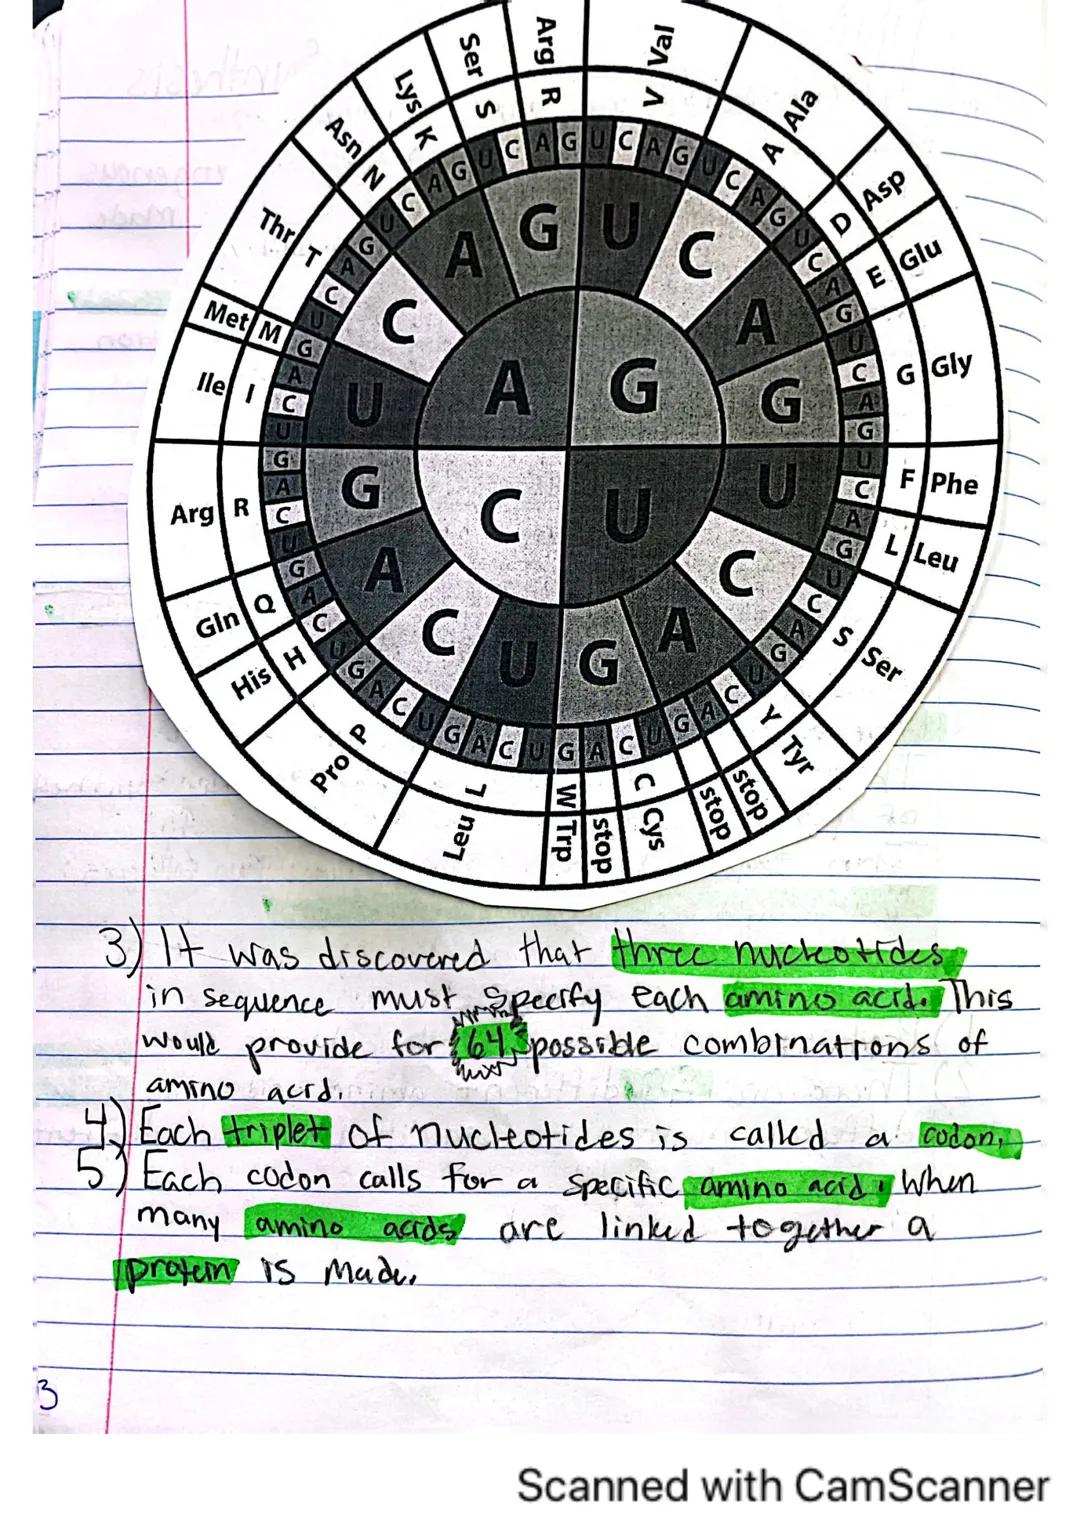 Val
V
Ala
A
Asp
D
Glu
E
Gly
G
Phe
F
Leu
L
Ser
S
Tyr
Y
stop
stop
Cys
C
stop
Trp
W
Leu
L
Pro
P
His
H
Gln
Q
Arg
R
Ile
I
Met
M
Thr
T
Asn
N
Lys
K
Ser
S
Arg
R
U C A G U C A G U C A G U C A G
U C A G U C A G U C A G U C A G
G A C U G A C U G A C U G A C U
U C A G U C A G U C A G U C A G
C A G U C A G
U C A G
G A C U
U C A G
A G
C U
3) It was discovered that three nucleotides
in sequence must specify each amino acid. This
would provide for 64 possible combinations of
amino acid.
4) Each triplet of nucleotides is called a codon.
5) Each codon calls for a specific amino acid. When
many amino acids are linked together a
protein is made.
3
Scanned with CamScanner